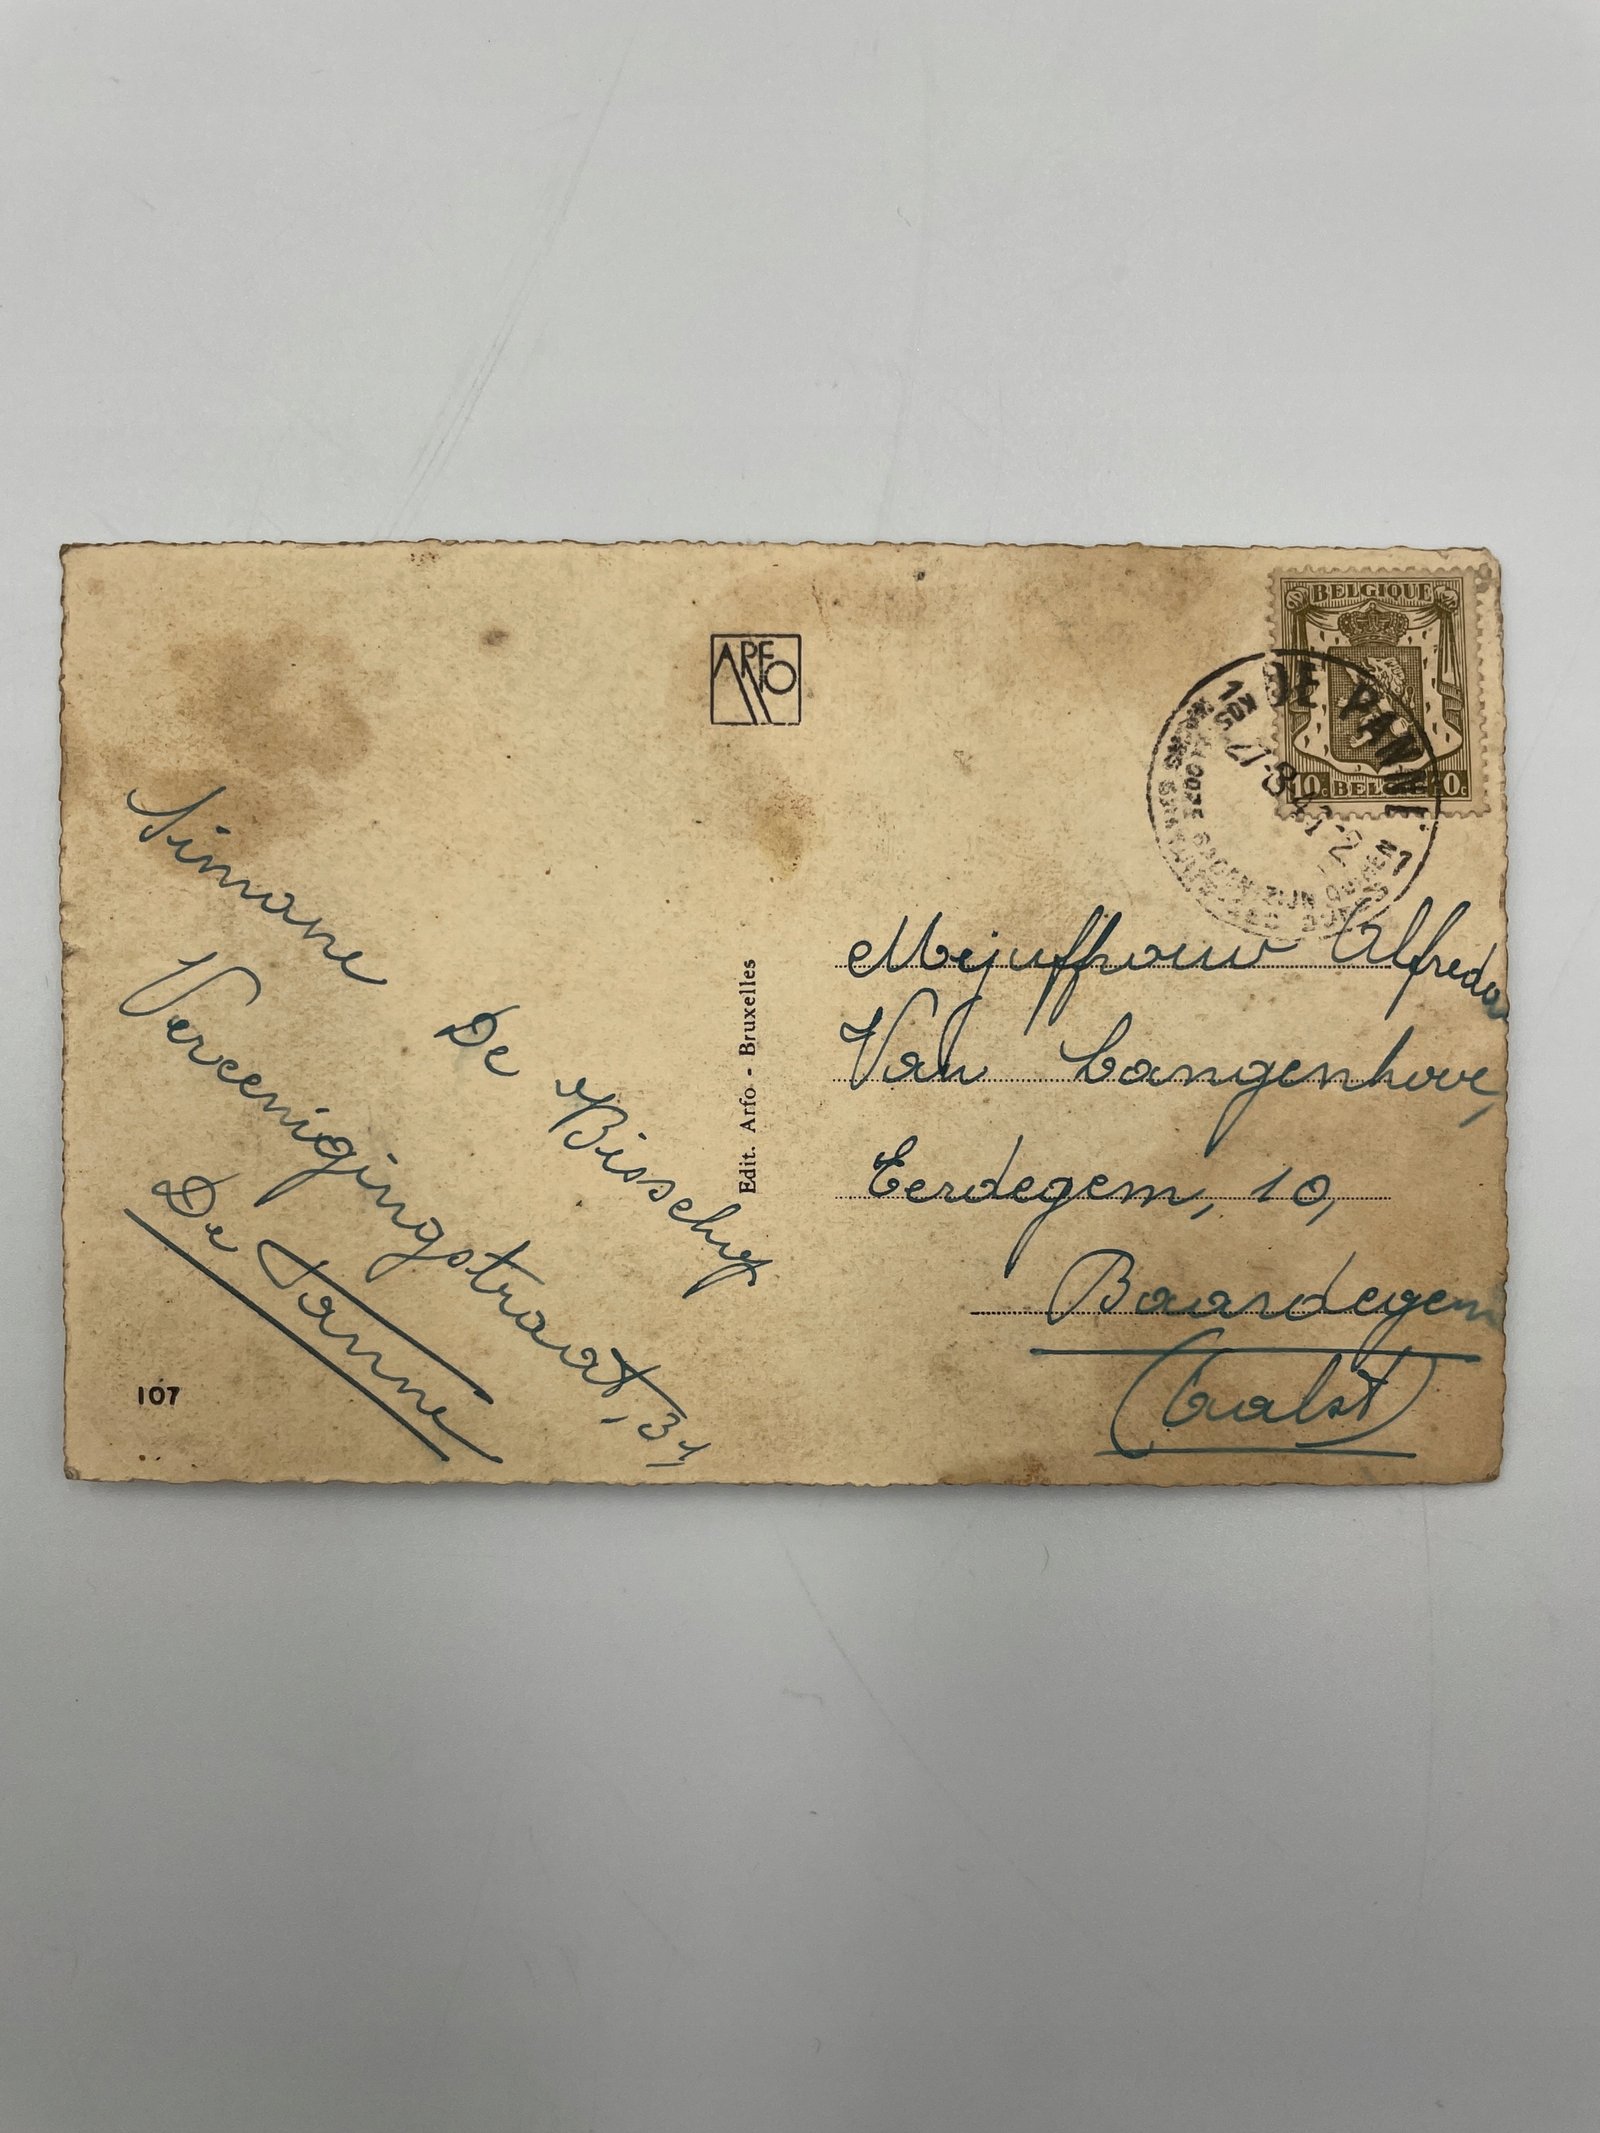 Simone De Bisschop
Vereenigingstraat, 31
De Panne
107
ARFO
Edit. Arfo - Bruxelles
BELGIQUE
10c BELGIE 10c
DE PANNE
Mejuffrouw Alfreda
Van Langenhove,
Eerdegem, 10,
Baardegem
(Aalst)